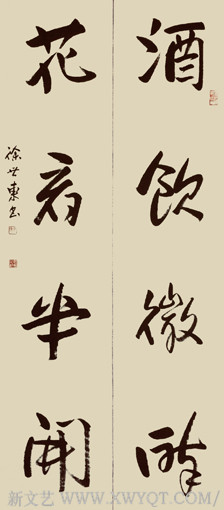 酒飲微醉
花看半開
徐世東书
新文艺 www.XWYQT.COM